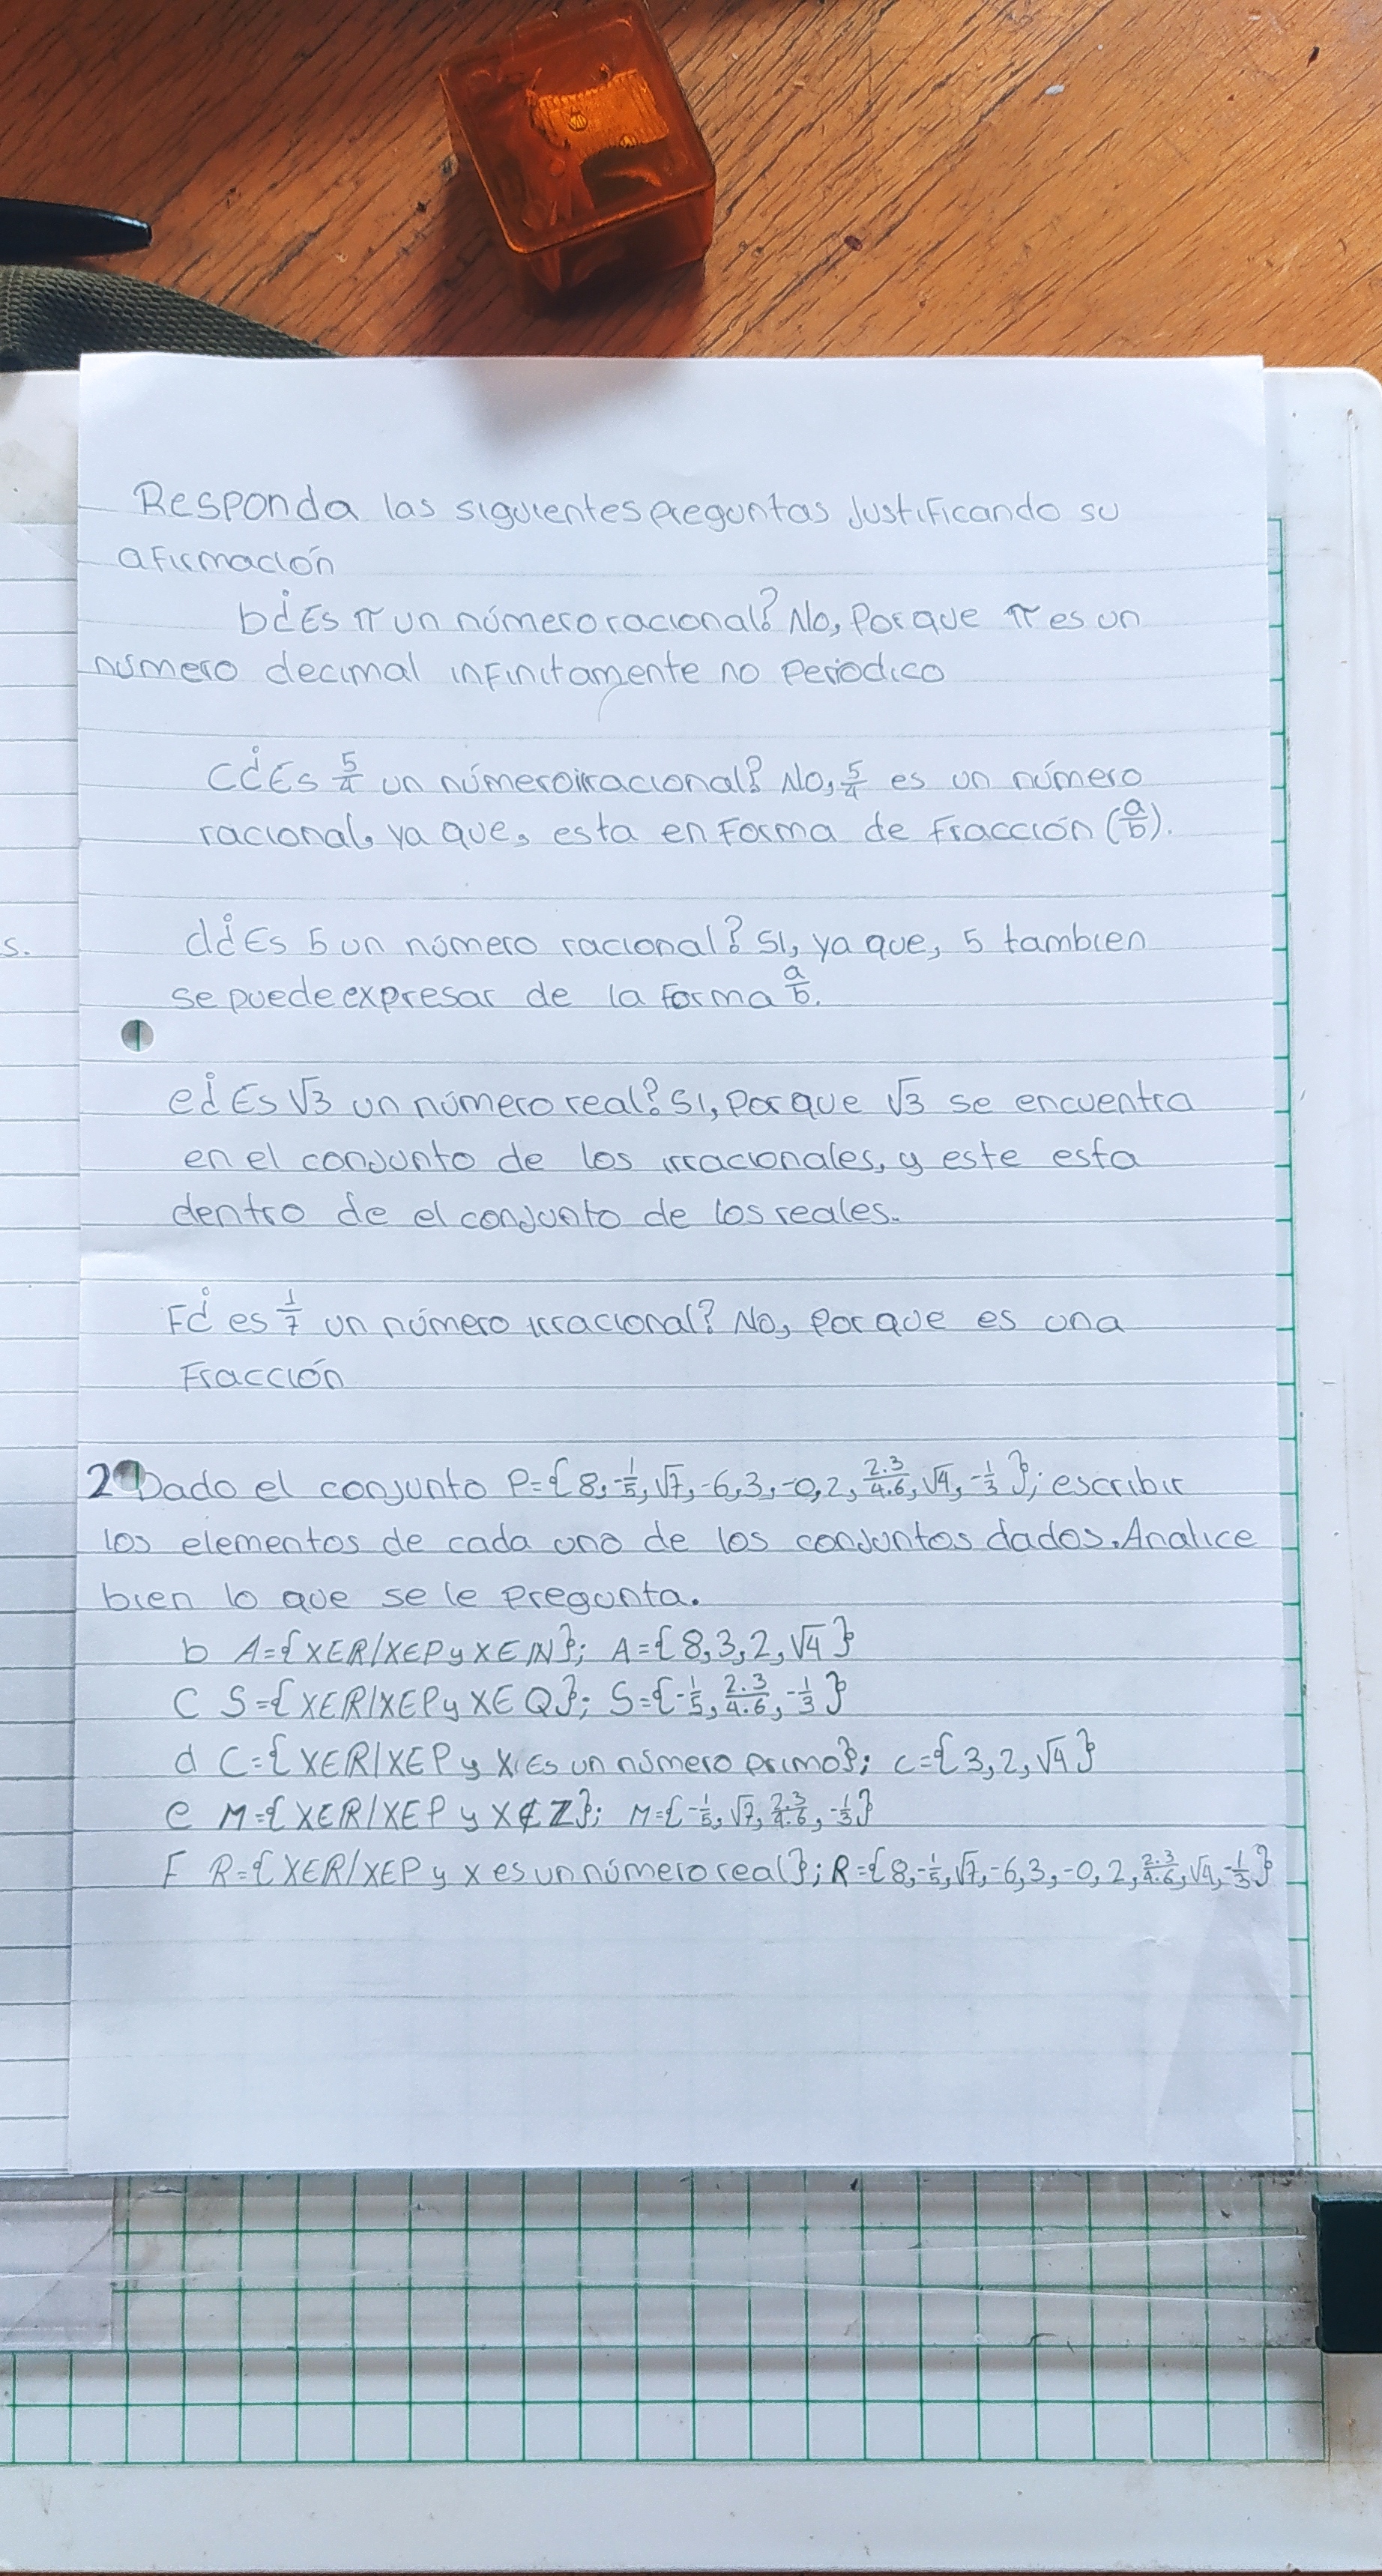 Responda las siguientes preguntas Justificando su
afirmación
b ¿Es π un número racional? No, Porque π es un
número decimal infinitamente no periodico
C ¿Es 5/4 un número irracional? No, 5/4 es un número
racional, ya que, esta en Forma de Fracción (a/b).
d ¿Es 5 un número racional? Si, ya que, 5 tambien
se puede expresar de la Forma a/b.
e ¿Es √3 un número real? Si, Porque √3 se encuentra
en el conjunto de los irracionales, y este esta
dentro de el conjunto de los reales.
F ¿es 1/7 un número irracional? No, Porque es una
Fracción
2 Dado el conjunto P={8,-1/5,√7,-6,3,-0,2,2.3/4.6,√4,-1/3}; escribir
los elementos de cada uno de los conjuntos dados. Analice
bien lo que se le Pregunta.
b A={X∈R/X∈P y X∈N}; A={8,3,2,√4}
C S={X∈R/X∈P y X∈Q}; S={-1/5,2.3/4.6,-1/3}
d C={X∈R/X∈P y X Es un número primo}; C={3,2,√4}
e M={X∈R/X∈P y X∉Z}; M={-1/5,√7,2.3/4.6,-1/3}
F R={X∈R/X∈P y X es un número real}; R={8,-1/5,√7,-6,3,-0,2,2.3/4.6,√4,-1/3}
s.